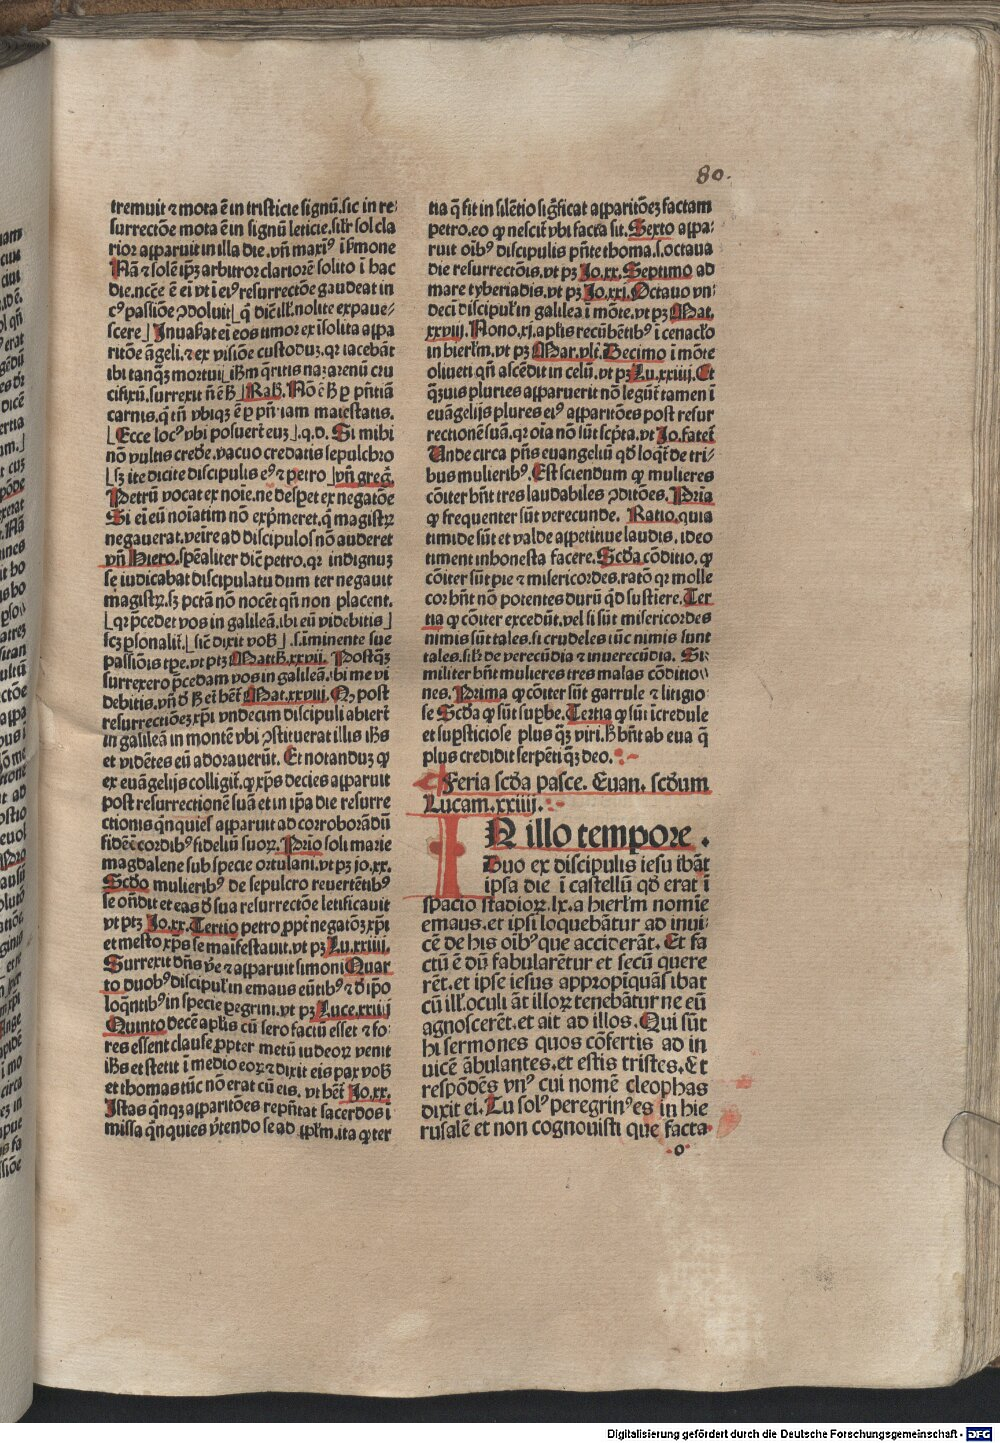 80.
tremuit ⁊ mota ē in tristicie signū. sic in re⸗
surrectōe mota ē in signū leticie. silr̄ sol cla
rior apparuit in illa die. vñ maxiꝰ ī ẜmone
Nā ⁊ solē ip̄ꝫ arbitror clariorē solito ī hac
die. ncēe ē eī vt ī eiꝰ resurrectōe gaudeat in
cꝰ passiōe ꝯdoluit ⌊q̄ diē illꝭ. nolite expaue⸗
scere⌋ Inuaſat eī eos timor ex īsolita appa
ritōe āgeli. ⁊ ex visiōe custoduꝫ. qꝛ iacebāt
ibi tanqꝫ mortui ⌊ihm̄ q̄ritis naꝫarenū cru
cifixū. surrexit n̄ ē ħ⌋ Rab. Nō ē ħ ꝑ pn̄tiā
carnis. q̄ tn̄ vbiqꝫ ē ꝑ pn̄tiam maiestatis.
⌊Ecce locꝰ vbi posuerт̄ euꝫ⌋. q. d. Si mihi
nō vultis crede. vacuo credatis sepulchro
⌊sꝫ ite dicite discipulis eꝰ ⁊ petro⌋ vñ greg̃.
Petrū vocat ex noīe. ne despet ex negatōe
Si eī eū noīatim nō exp̄meret. q̄ magistꝝ
negauerat. veīre ad discipulos nō auderet
vñ Hiero. spēaliter diē petro. qꝛ indignuꝫ
se iudicabat discipulatu dum ter negauit
magistꝝ. sꝫ pctā nō nocēt qn̄ non placent.
⌊qꝛ p̄cedet vos in galileā. ibi eū videbitis⌋
scꝫ ꝑsonalit̄. ⌊sic̄ dixit vob̄⌋. s. īminente sue
passiōis tp̄e. vt ptꝫ Matth. xxvij. Postq̄ꝫ
surrexero p̄cedam vos in galileā. ibi me vi
debitis. vñ ꝺ ħ et̄ het̄ Mat. xxviij. Qꝫ post
resurrectiōeꝫ xp̄i vndecim discipuli abierт̄
in galileā in montē vbi ꝯstituerat illis ihs̄
et vidētes eū adorauerūt. Et notanduꝫ ꝙ
ex euāgelijs colligit̄. ꝙ xp̄s decies apparuit
post resurrectionē suā et in ip̄a die resurre
ctionis qn̄quies apparuit ad corroborādū
fidē ī cordibꝰ fideliū suoꝝ. Prīo soli marie
magdalene sub specie ortulani. vt pꝫ jo. xx.
Scd̄o mulieribꝰ de sepulcro reuertētibꝰ
se on̄dit et eas ꝺ sua resurrectōe letificauit
vt ptꝫ Jo. xx. Tertio petro ꝓpt̄ negatōꝫ xp̄i
et mesto xp̄s se maīfestauit. vt pꝫ Lu. xxiiij.
Surrexit dn̄s v̄e ⁊ apparuit simoni Quar
to duobꝰ discipul̄ in emaus eūtibꝰ ⁊ ꝺ ip̄o
loq̄ntibꝰ in specie ꝑegrini. vt pꝫ Luce. xxiiij
Quinto decē apl̄is cū sero faciū esset ⁊ fo⸗
res essent clause ꝓpter metū iudeoꝝ venit
ihs̄ et stetit ī medio eoꝝ ⁊ dixit eis pax vob̄
et thomas tūc nō erat cū eis. vt het̄ Jo. xx.
Istas qn̄qꝫ apparitōes repn̄tat sacerdos ī
missa qn̄quies v̄tendo se ad ip̄lm̄. ita ꝙ ter
tia q̄ fit in silētio sig̃ficat apparitōeꝫ factam
petro. eo ꝙ nescit̄ vbi facta sit. Sexto appa⸗
ruit oībꝰ discipulis pn̄te thoma. s. octaua
die resurrectōis. vt pꝫ Jo. xx. Septimo ad
mare tyberiadis. vt pꝫ Jo. xxi. Octauo vn⸗
deci discipul̄ in galilea ī mōte. vt pꝫ Mat.
xxviij. Nono. xi. apl̄is recūbētibꝰ ī cenacl̄o
in hierl̄m. vt pꝫ Mar. vlt̄. Decimo ī mōte
oliueti qn̄ ascēdit in celū. vt pꝫ Lu. xxiiij. Et
q̄ꝫuis pluries apparuerit nō legūt̄ tamen ī
euāgelijs plures eiꝰ apparitōes post resur
rectionē suā. qꝛ oīa nō sūt scp̄ta. vt Jo. fatet̄
Unde circa pn̄s euangeliū qd̄ loqt̄ de tri⸗
bus mulieribꝰ. Est sciendum ꝙ mulieres
cōiter hn̄t tres laudabiles ꝯditōes. Prīa
ꝙ frequenter sūt verecunde. Ratio. quia
timide sūt et valde appetitiue laudis. ideo
timent inhonesta facere. Scd̄a cōditio. ꝙ
cōiter sūt pie ⁊ misericordes. ratō qꝛ molle
cor hn̄t nō potentes durū qd̄ sustiere. Ter
tia ꝙ cōiter excedūt. vel si sūt misericordes
nimis sūt tales. si crudeles tūc nimis sunt
tales. silr̄ de verecūdia ⁊ inuerecūdia. Si⸗
militer hn̄t mulieres tres malas cōditio⸗
nes. Prima ꝙ cōiter sūt garrule ⁊ litigio
se Scd̄a ꝙ sūt suꝑbe. Tertia ꝙ sūt īcredule
et suꝑsticiose plus q̄ꝫ viri. ħ hn̄t ab eua q̄
plus credidit serpēti q̄ꝫ deo.
Feria scd̄a pasce. Euan. scd̄um
Lucam. xxiiij.
IN illo tempore.
Duo ex discipulis iesu ibāt
ipsa die ī castellū qd̄ erat ī
spacio stadioꝝ. lx. a hierl̄m nomīe
emaus. et ipsi loquebātur ad inui⸗
cē de his oībꝰ que acciderāt. Et fa
ctū ē dū fabularētur et secū quere
rēt. et ipse iesus appropīquās ibat
cū ill̄. oculi āt illoꝝ tenebātur ne eū
agnoscerēt. et ait ad illos. Qui sūt
hi sermones quos cōfertis ad in
uicē ābulantes. et estis tristes. Et
respōdēs vnꝰ cui nomē cleophas
dixit ei. Tu solꝰ peregrinꝰ es in hie
rusalē et non cognouisti que facta
o
Digitalisierung gefördert durch die Deutsche Forschungsgemeinschaft - DFG